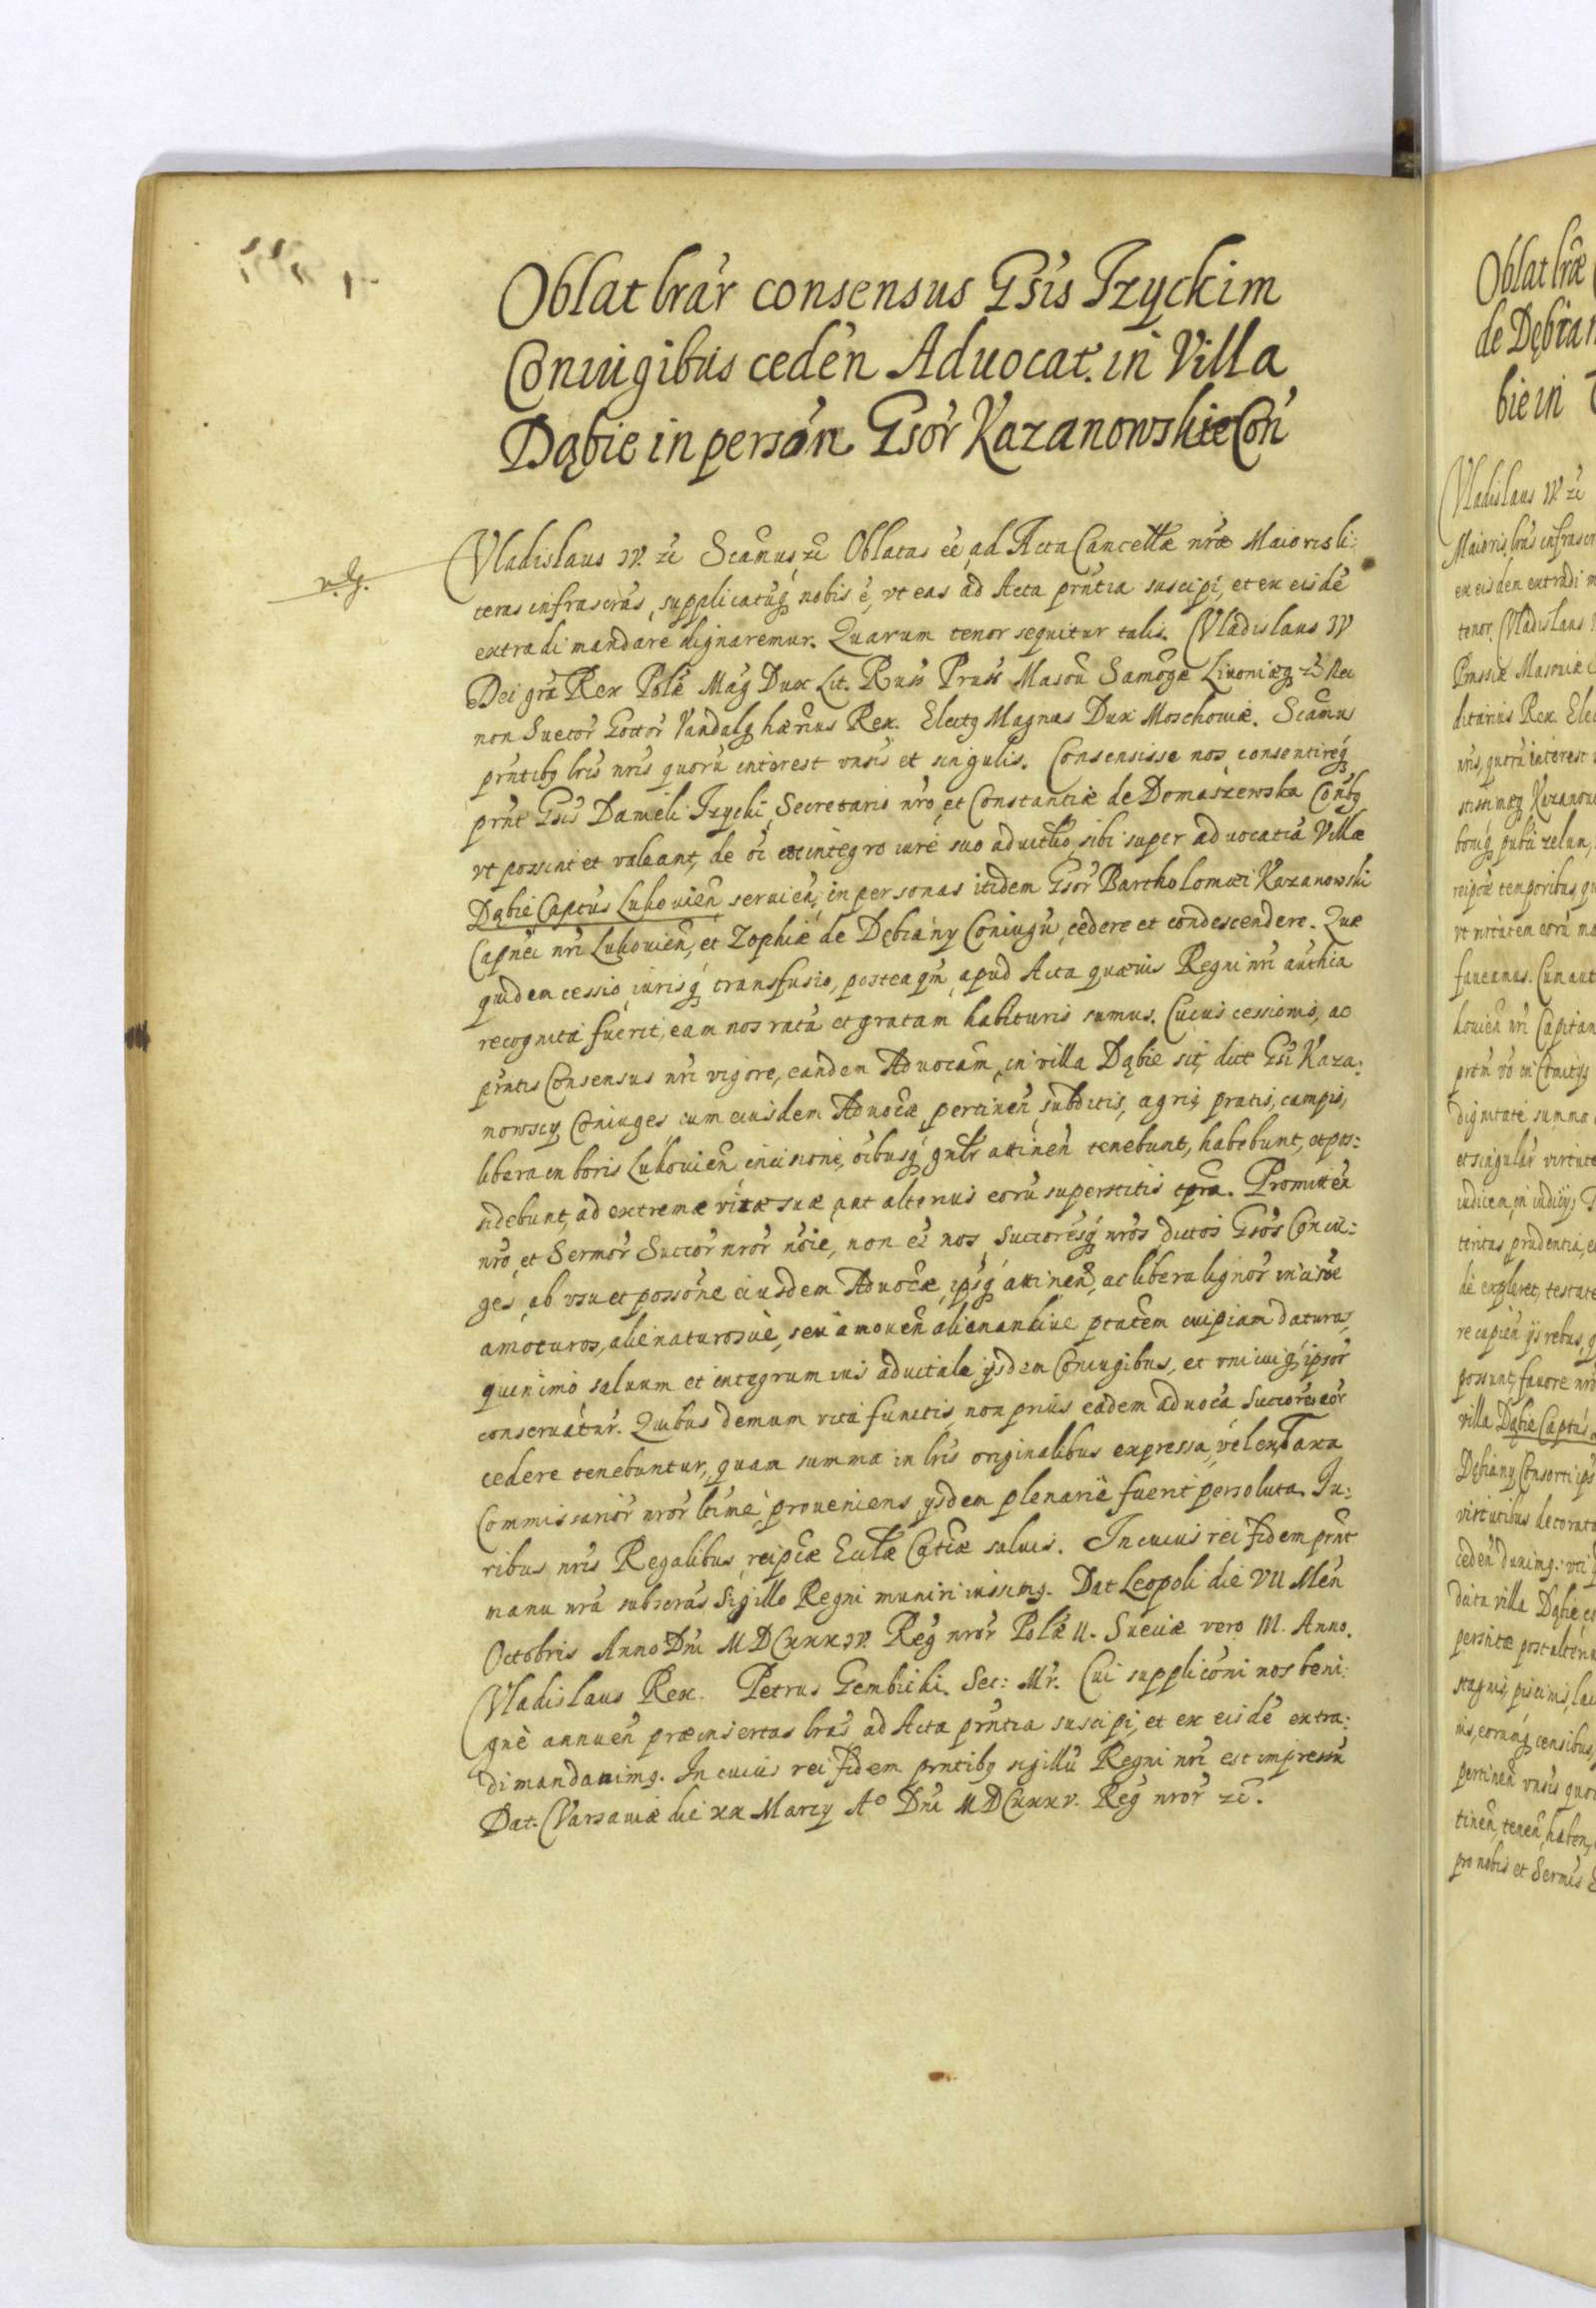 Oblat lrar consensus Gsis Irzyckim
Coniugibus ceden Aduocat. in Villa
Dąbie in person Gsor Kazanowskie Con
Vladislaus IV. zc Scamus, zc Oblatas ee, ad Acta Cancellae nrae Maioris li:
teras infrascras, supplicatuq nobis e, vt eas ad Acta prntia suscipi, et ex eisde
extradi mandare dignaremur. Quarum tenor sequitur talis. Vladislaus IV
Dei gra Rex Polae Mag Dux Lit. Russ Pruss Masou Samogae Liuoniaeq zc Nec
non Suecor Gottor Vandalq haerius Rex. Electq Magnus Dux Moschouiae. Scamus
prntibq lris nris quoru interest vnsis et singulis. Consensisse nos consentireq
prnt Gsis Danieli Irzycki, Secretario nro, et Constantiae de Domaszewska Conibq
vt possint et valeant, de oi et integro iure suo aduitlio, sibi super aduocatia Villae
Dąbie Captus Lukouien seruien, in personas itidem Gsor Bartholomaei Kazanowski
Capnei nri Lukouien, et Zophiae de Dębiany Coniugu, cedere et condescendere. Quae
quidem cessio, iurisq transfusio, posteaqm, apud Acta quaeuis Regni nri authia
recognita fuerit, eam nos rata et gratam habituris sumus. Cuius cessionis, ac
prntis Consensus nri vigore, eandem Aduocam, in villa Dąbie sit, dict Gsi Kaza:
nowscy Coniuges cum eiusdem Aduocae, pertinen, subditis, agris, pratis, campis,
libera in boris Lukouien incisione, oibusq gnlr attinen tenebunt, habebunt, et pos:
sidebunt, ad extrema vitae suae aut alterius eoru superstitis tpra. Promitten
nro, et Sermor Succor nror noie, non ee nos, Succoresq nros dictos Gsos Coniu:
ges, ab vsu et possone eiusdem Aduocae, ipsq attinen, ac libera lignor incisoe
amoturos, alienaturosue, seu amouen alienandiue ptatem cuipiam daturos,
quinimo saluum et integrum ius aduitale ijsdem Coniugibus, et vnicuiq ipsor
conseruatur. Quibus demum vita functis, non prius eadem aduoca Succores eor
cedere tenebuntur, quam summa in lris originalibus expressa, vel ex Taxa
Commissarior nror ltime, proueniens ijsdem plenarie fuerit persoluta. Iu:
ribus nris Regalibus, reipcae Eccllae Catcae saluis. In cuius rei fidem prnt
manu nra subscras Sigillo Regni muniri iussimq. Dat Leopoli die VII Men
Octobris Anno Dni MDCXXXIV. Reg nror Polae II. Sueciae vero III. Anno.
Vladislaus Rex. Petrus Gembicki. Sec: Mr. Cui suppliconi nos beni:
gne annuen praeinsertas lras, ad Acta prntia suscipi, et ex eisde extra:
di mandauimq. In cuius rei fidem prntibq sigillu Regni nri est impressu
Dat. Varsauiae die XX Marty Ao Dni MDCXXXV. Reg nror zc.
Oblat lrae
de Dębian
bie in
Vladislaus IV. zc
Maioris, lras infrascr
ex eisdem extradi m
tenor. Vladislaus
Prussiae Masouiae
ditarius Rex. Elec
nris, quoru interest
Kazanow
boniq publi zelum,
temporibus, qu
vt meritatem eoru
faueamus. Cum aut
kouien nri Capitan
dignitate summo
et singular virtute
iudicem, in iudicijs
prudentia, e
de expleret, testat
recipien ijs rebus, q
possunt, fauore nro
villa Dąbie Captus
Dębiany Consorti ips
virtutibus decorat
ceden duximq: vti
dicta villa Dąbie
post alter
stagnis, piscinis, lac
censibus,
pertinen vnsis
tinen, tenen, haben,
pro nobis et Sermis